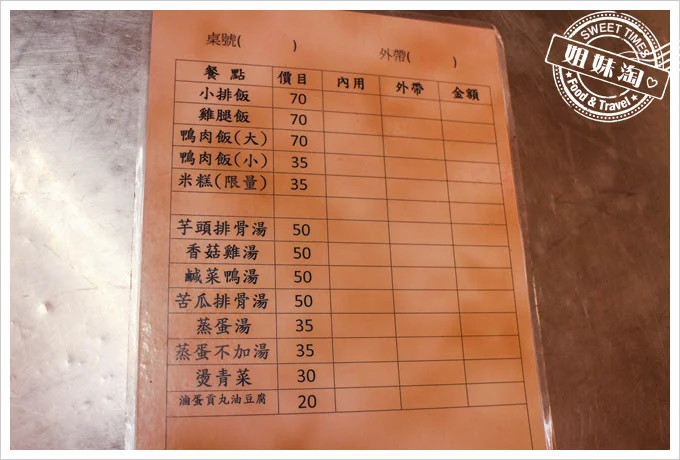 SWEET TIMES
姐妹淘
Food & Travel
桌號( )
外帶( )
餐 點 價目 內用 外帶 金額
小排飯 70
雞腿飯 70
鴨肉飯(大) 70
鴨肉飯(小) 35
米糕(限量) 35
芋頭排骨湯 50
香菇雞湯 50
鹹菜鴨湯 50
苦瓜排骨湯 50
蒸蛋湯 35
蒸蛋不加湯 35
燙青菜 30
滷蛋貢丸油豆腐 20